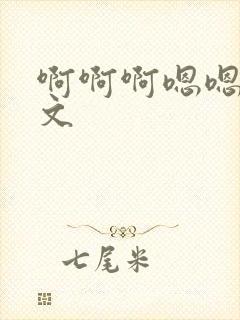 啊啊啊嗯嗯
文
七尾米